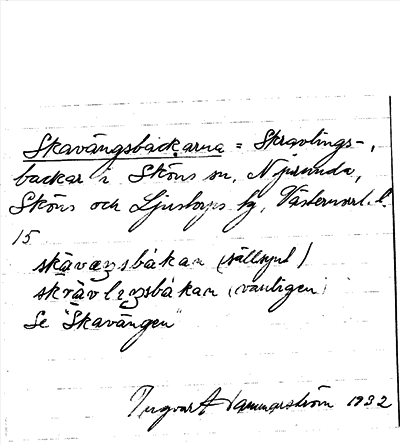 Skavängsbäckarna = Skravlings-,
backar i Sköns sn, Njurunda,
Sköns och Ljustorps tg, Västernorrl. l.
15
skävæŋsbákan (sällsynt)
skrävlıŋsbákan (vanligen)
Se "Skavängen"
Ingvar Hammarström 1932